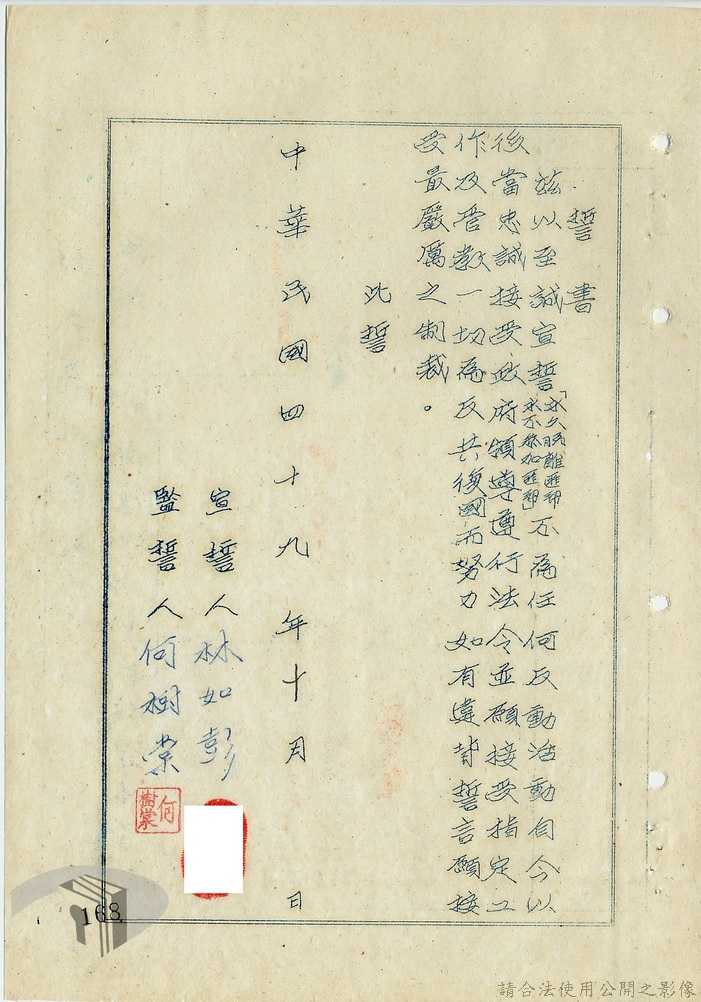 誓書
茲以至誠宣誓「永久脫離匪幫永不參加匪幫」不為任何反動活動自今以
後當忠誠接受政府領導遵行法令並願接受指定工
作及管教一切為反共復國而努力如有違背誓言願接
受最嚴厲之制裁。
此誓
中華民國四十九年十月日
宣誓人林如彭
監誓人何樹棠
何樹棠
168
請合法使用公開之影像